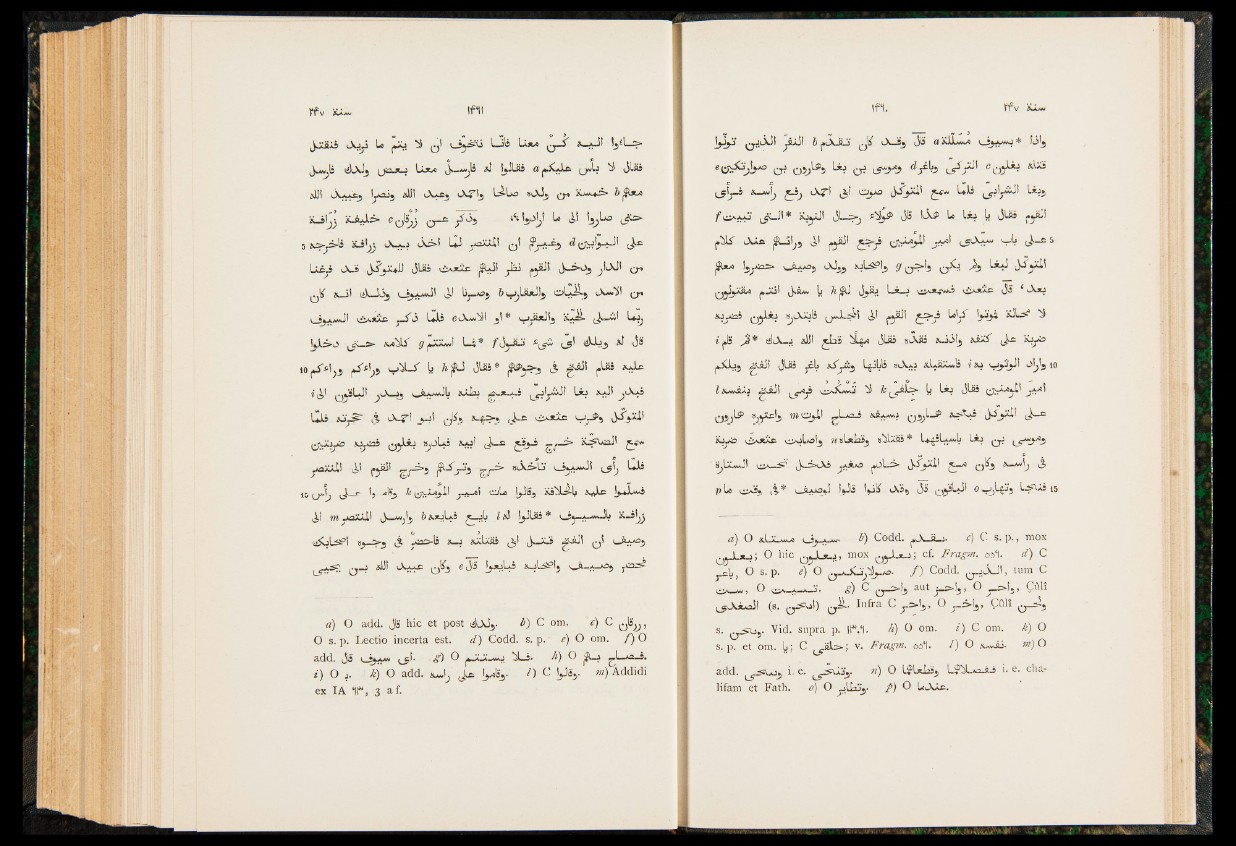 سنة ٢٤٧ ١٤٦٠
واذا *بسيوف مسلّلة a قال وقد كان تقدّم b النفر الذين تولّوا
قتله بغلون c التركى وباغر d وموسى بن بغا وهارون بن صوارتكين e
وبغا الشرابى فلما سمع المتوكّل صوت ابى احمد رفع رأسه فرأى
القوم فقال يا بغا ما هذا قال هؤلاء رجال النوبة *التى تبيت f
على باب سيّدى امير المؤمنين فرجع القوم الى ورائهم عند كلام 5
المتوكّل لبغا ولم يكن واجن g واصحابه وولد وصيف حضروا معهم
بعد، قال عثعث فسمعت بغا يقول لهم h يا سفل انتم مقتولون
لا محالة فموتوا كراما فرجع القوم الى المجلس فابتدره بغلون فضربه
ضربة على كتفه واذنه فقدّه فقال مهلا قطع الله يدك *ثم قام i
واراد الوثوب به i فاستقبله بيده فابانها وشركه باغر فقال الفتح ويلكم 10
امير المؤمنين فقال بغا يا جلفى k لا تسكت فرمى الفتح بنفسه l
على المتوكّل فبعجه هارون بسيفه فصاح الموت m واعتوره هارون
وموسى بن بغا باسيافهما *فقتلاه وقطعاه n واصابت عثعث ضربة
فى رأسه وكان مع المتوكّل خادم صغير فدخل تحت الستارة
فنجا وتهارب o الباقون قال وقد كانوا قالوا لوصيف *فى وقت ما p 15
a) O بسيوف مسللة. b) Codd. يقدم. c) C s. p., mox
بعلون; O hic يعلون, mox بعلون; cf. Fragm. ٥٥٦. d) C
باعر, O s. p. e) O صوارتكين. f) Codd. الذين, tum C
O g) C واجن aut واحر, O واحر, Çûlî
الصغدى Infra C واجر, O واخر, Çûlî
Vid. supra p. h) O om. i) C om. k) O
s. p. et om. يا; C جلفى; v. Fragm. ٥٥٦. l) O نفسه. m) O
add. i. e. n) O i. e. cha-
lifam et Fath. o) O وتطاير. p) O عندما.
١٤٦١ سنة ٢٤٧
جاءوا اليه كن معنا فانّا نتخوّف ان لا يتمّ ما نريد فنقتل
فقال لا بأس عليكم a فقالوا له فارسل معنا بعض ولدك فارسل
معهم b خمسة من ولده صالحا واحمد وعبد الله ونصرا وعبيد الله
حتى صاروا الى ما ارادوا، وذكر عن زرقان c خليفة زرافة
على البوّابين d وغيرهم ان المنتصر لمّا اخذ بيد زرافة فاخرجه 5
من الدار ودخل القوم نظر اليهم عثعث فقال للمتوكّل قد فرغنا
من الاسد والحيّات والعقارب b وصرنا الى السيوف وذلك انه كان
ربّما اشلى الحيّة والعقرب *او الاسد e فلما ذكر عثعث السيوف
قال له ويلك اىّ شىء تقول f *فما استتمّ g كلامه حتى دخلوا
عليه فقام الفتح فى وجوههم *فقال لهم h يا كلاب وراءكم وراءكم 10
فبدر اليه بغا الشرابى فبعج بطنه بالسيف وبدر الباقون الى i
المتوكّل وهرب عثعث على وجهه وكان ابو احمد فى حجرته فلمّا
سمع الضجّة خرج فوقع على ابيه فبادره بغلون فضربه ضربتين
فلمّا رأى السيوف تأخذه خرج وتركهم وخرج القوم الى المنتصر
فسلّموا عليه بالخلافة وقالوا مات امير المؤمنين k وقاموا على رأس 15
زرافة بالسيوف *فقالوا له l بايع فبايعه b وارسل المنتصر m الى
وصيف ان الفتح قتل ابى فقتلته به فاحضر فى وجوه اصحابك
فحضر وصيف واصحابه فبايعوا قال e وكان عبيد الله بن يحيى
a) O add. قال hic et post ولدك. b) C om. c) C زرقان,
O s. p. Lectio incerta est. d) Codd. s. p. e) O om. f) O
add. قال سيوف اى. g) O فلا يستتم. h) O فصاح بهم.
i) O k) O add. وقاموا على رأسه. l) C وقالوا. m) Addidi
ex IA ٦٣, 3 a f.